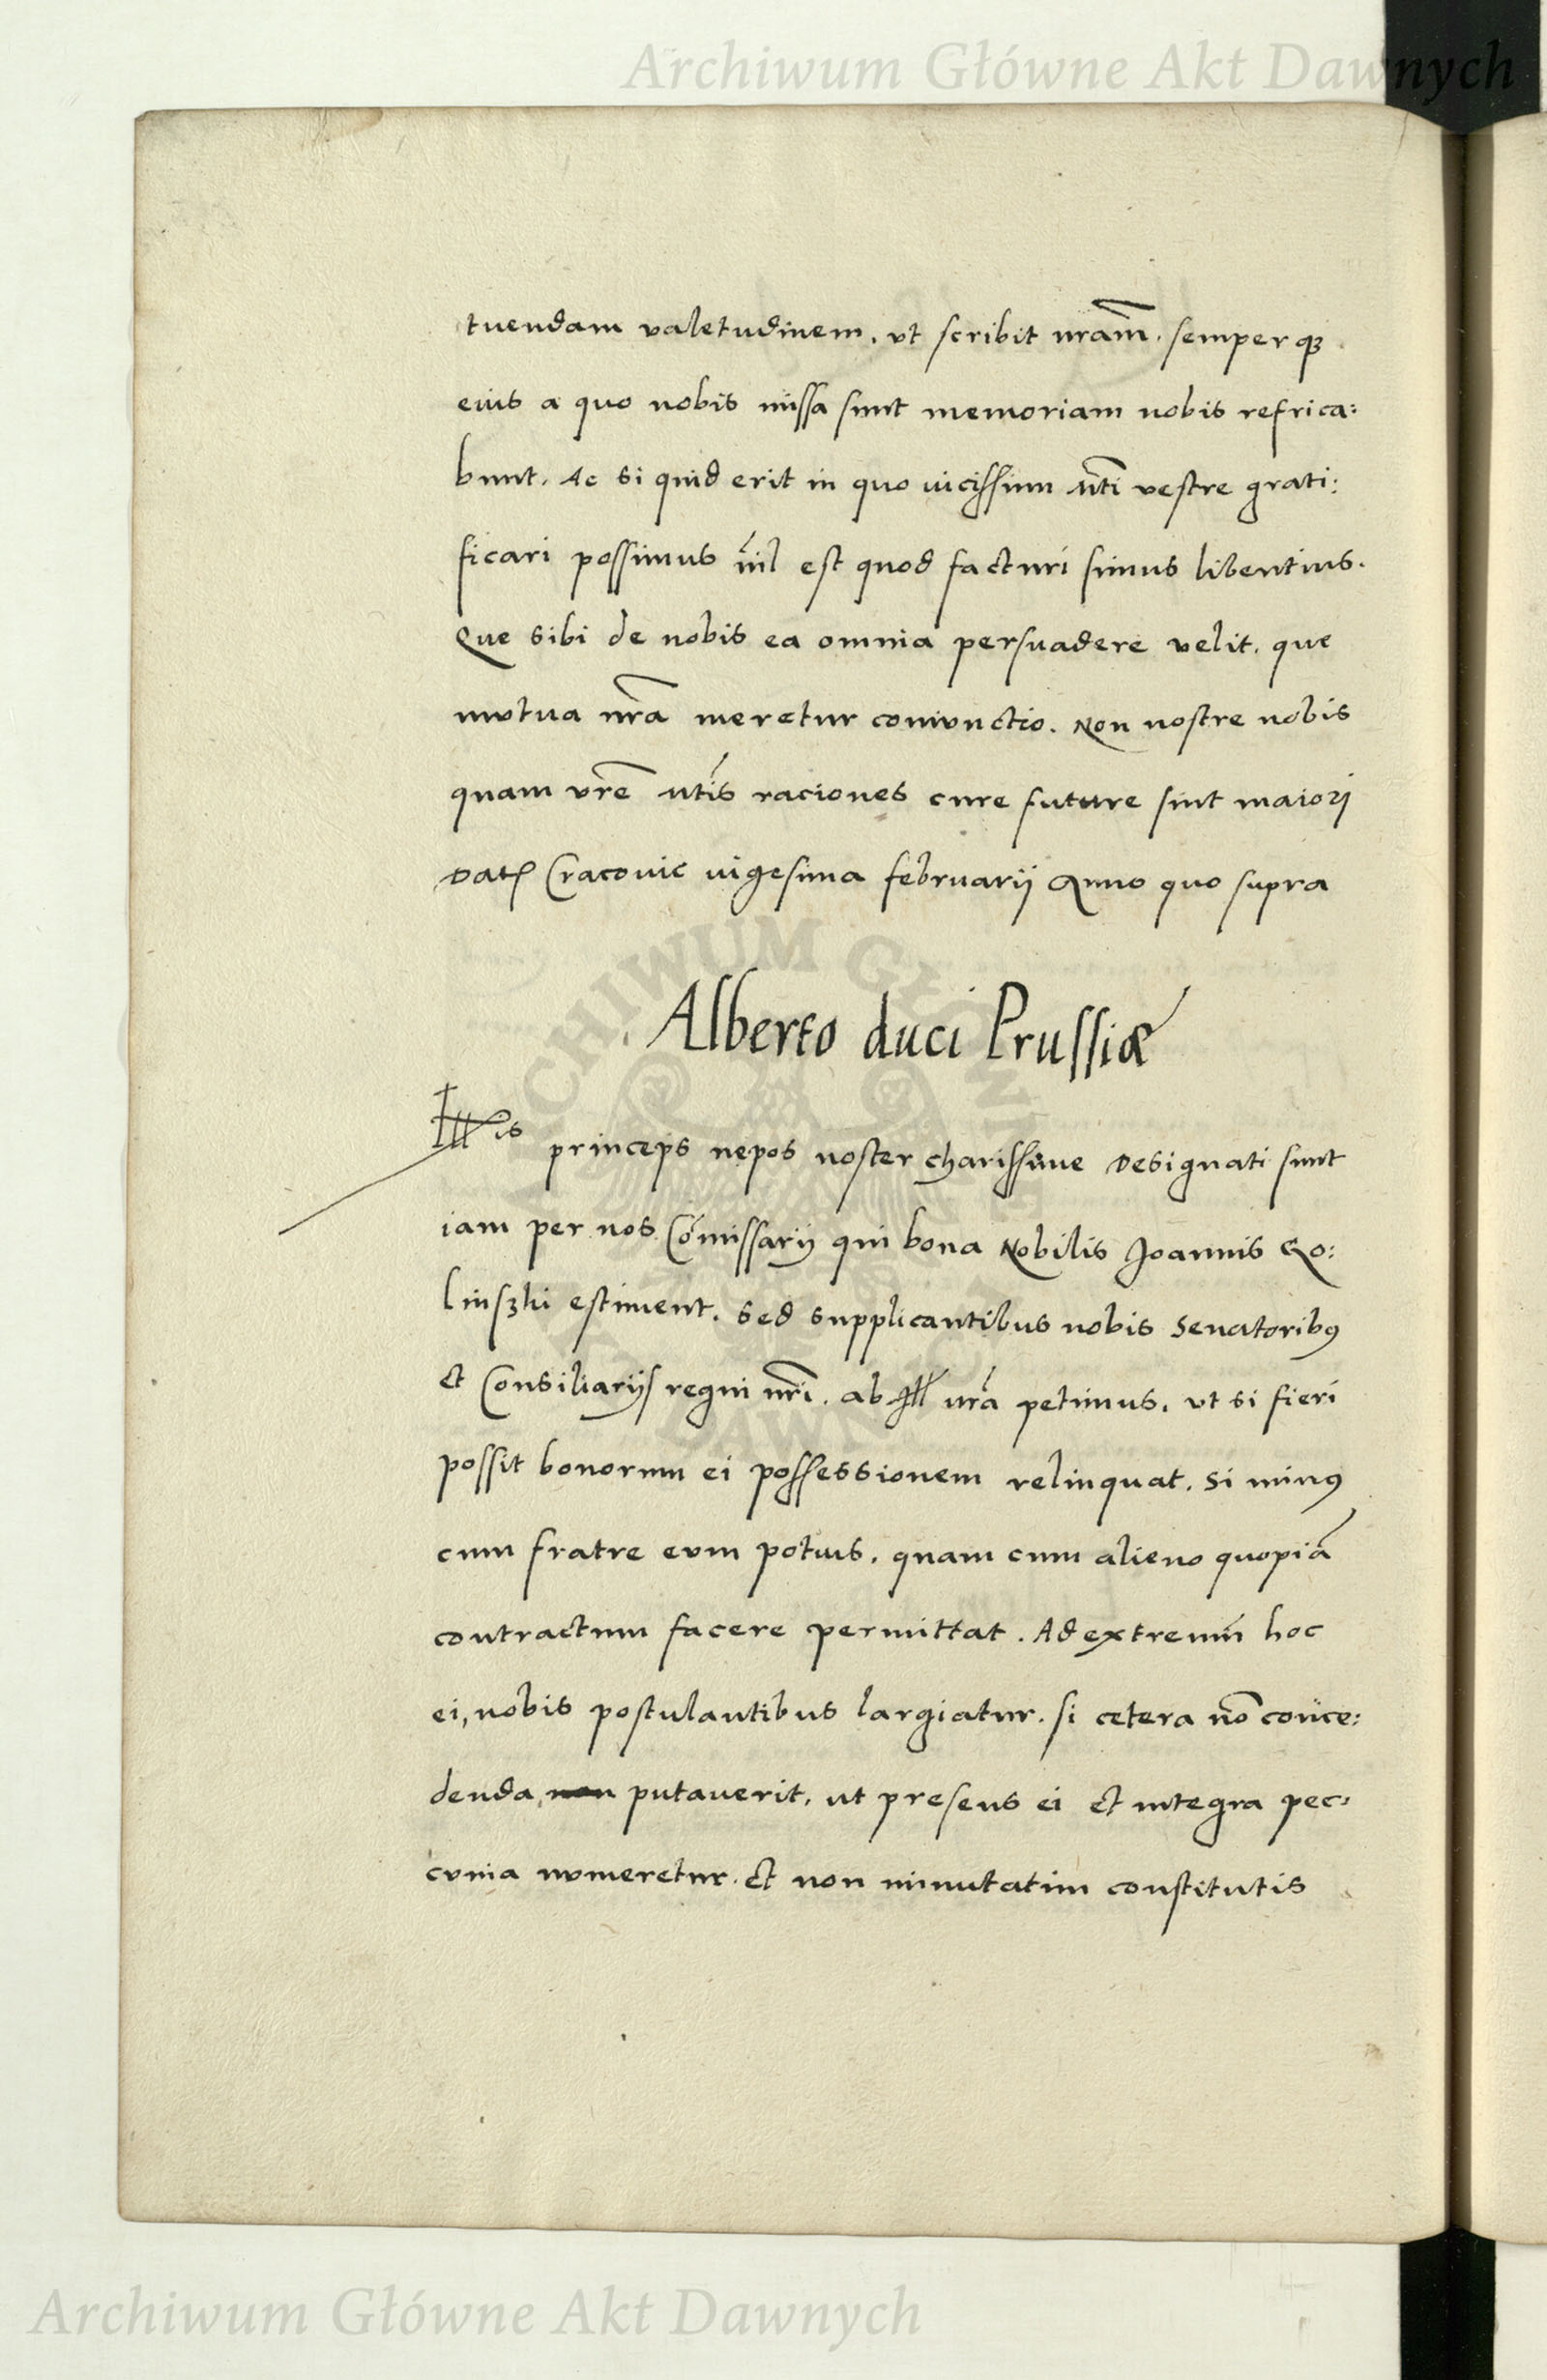 Archiwum Główne Akt Dawnych
tuendam valetudinem, vt scribit nr̃am. semperq3
eius a quo nobis missa sunt memoriam nobis refrica:
bunt. Ac si quid erit in quo vicissim vestre grati:
ficari possimus nil est quod facturi simus libentius.
Que sibi de nobis ea omnia persuadere velit, que
mutua nr̃a meretur coniunctio. Non nostre nobis
quam vr̃e raciones cure future sint maiori
Dat Cracovie vigesima februarij Anno quo supra
Alberto duci Prussiæ
Illis princeps nepos noster charissime Designati sunt
iam per nos Cōmissarij qui bona Nobilis Joannis
estiment. Sed supplicantibus nobis Senatorib9
et Consiliarijs regni nr̃i. ab Ill vr̃a petimus, vt si fieri
possit bonorum ei possessionem relinquat. Si min9
cum fratre eum potius, quam cum alieno quopiā
contractum facere permittat. Ad extremū hoc
ei, nobis postulantibus largiatur. si cetera nō conce:
denda non putaverit, ut presens ei et integra pec:
cunia numeretur. Et non minutatim constitutis
Archiwum Główne Akt Dawnych